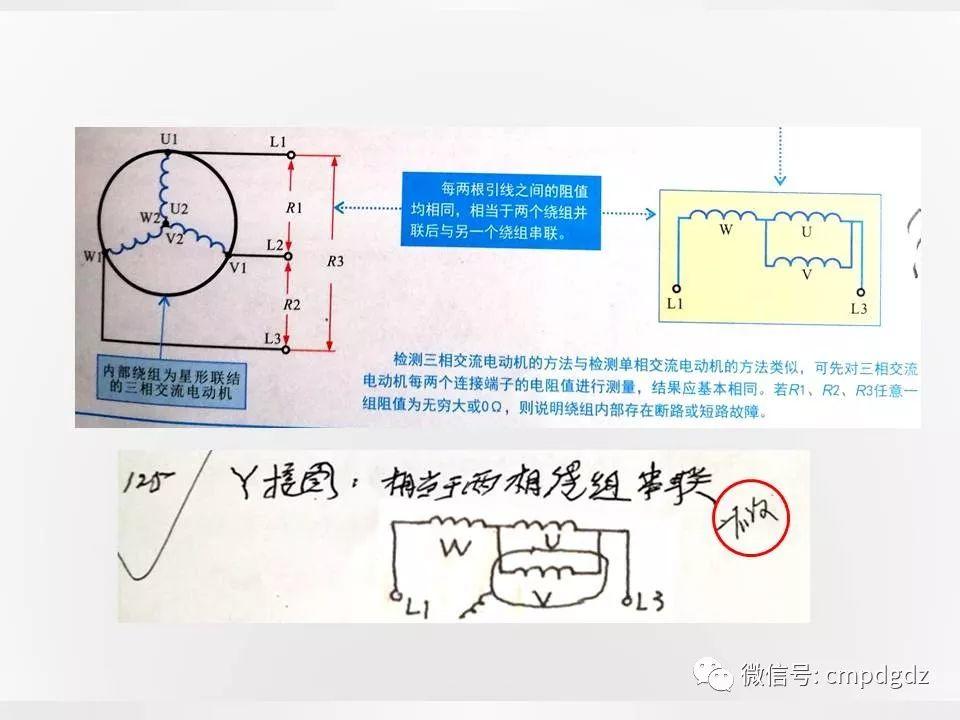 U1
L1
U2
W2
V2
W1
V1
R1
L2
R3
R2
L3
内部绕组为星形联结
的三相交流电动机
每两根引线之间的阻值
均相同，相当于两个绕组并
联后与另一个绕组串联。
W
U
V
L1
L3
检测三相交流电动机的方法与检测单相交流电动机的方法类似，可先对三相交流
电动机每两个连接端子的电阻值进行测量，结果应基本相同。若R1、R2、R3任意一
组阻值为无穷大或0Ω，则说明绕组内部存在断路或短路故障。
125
Y接图：相当于两相绕组串联
W
U
V
L1
L3
微信号: cmpdgdz